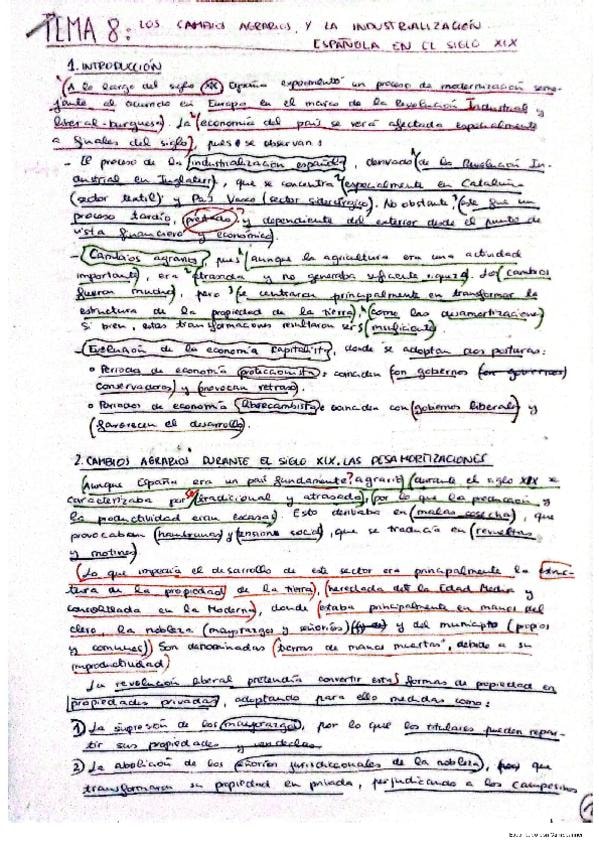 TEMA 8: LOS CAMBIOS AGRARIOS Y LA INDUSTRIALIZACIÓN
ESPAÑOLA EN EL SIGLO XIX
1. INTRODUCCIÓN
A lo largo del siglo XIX España experimentó un proceso de modernización seme-
jante al ocurrido en Europa en el marco de la Revolución Industrial y
liberal-burguesa. La economía del país se verá afectada especialmente
a finales del siglo, pues se observan:
- El proceso de la industrialización española, derivado de la Revolución In-
dustrial en Inglaterra, que se concentra especialmente en Cataluña
(sector textil) y País Vasco (sector siderúrgico). No obstante este fue un
proceso tardío, y dependiente del exterior desde el punto de
vista financiero y económico.
- Cambios agrarios, pues aunque la agricultura era una actividad
importante, era atrasada y no generaba suficiente riqueza. Los cambios
fueron muchos, pero se centraron principalmente en transformar la
estructura de la propiedad de la tierra, como las desamortizaciones
Si bien, estas transformaciones resultaron ser insuficiente.
- Evolución de la economía capitalista, donde se adoptan dos posturas:
• Periodos de economía proteccionista: coinciden con gobiernos
conservadores y provocan retraso.
• Periodos de economía librecambista: coinciden con gobiernos liberales y
favorecen el desarrollo.
2. CAMBIOS AGRARIOS DURANTE EL SIGLO XIX. LAS DESAMORTIZACIONES
Aunque España era un país agrario durante el siglo XIX se
caracterizaba por tradicional y atrasada, por lo que la producción y
la productividad eran escasas. Esto derivaba en malas cosechas, que
provocaban hambrunas y tensiones social, que se traducía en revueltas
y motines.
Lo que impedía el desarrollo de este sector era principalmente la estruc-
tura de la propiedad de la tierra, heredada de la Edad Media y
consolidada en la Moderna, donde estaba principalmente en manos del
clero, la nobleza (mayorazgos y señoríos) y del municipio (propios
y comunes). Son denominadas "tierras de manos muertas", debido a su
improductividad.
La revolución liberal pretendía convertir estas formas de propiedad en
propiedades privadas, adoptando para ello medidas como:
1) La supresión de los mayorazgos, por lo que los titulares pueden repar-
tir sus propiedades y venderlas.
2) La abolición de los señoríos jurisdiccionales de la nobleza, que
transformaron su propiedad en privada, perjudicando a los campesinos